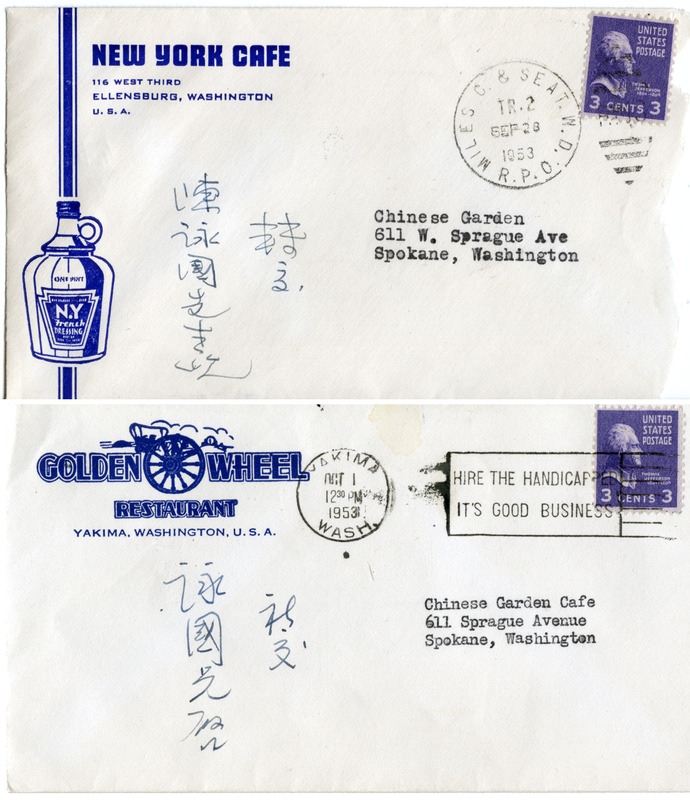 NEW YORK CAFE
116 WEST THIRD
ELLENSBURG, WASHINGTON
U. S. A.
ONE PINT
N.Y
French
DRESSING
MILES C. & SEAT. W. D.
TR. 2
SEP 28
1953
R. P. O.
UNITED
STATES
POSTAGE
THOMAS
JEFFERSON
3 CENTS 3
Chinese Garden
611 W. Sprague Ave
Spokane, Washington
轉交
陳詠國先生
GOLDEN WHEEL
RESTAURANT
YAKIMA, WASHINGTON, U. S. A.
YAKIMA
OCT 1
12 30 PM
1953
WASH.
HIRE THE HANDICAPPED
IT'S GOOD BUSINESS
UNITED
STATES
POSTAGE
THOMAS
JEFFERSON
3 CENTS 3
Chinese Garden Cafe
611 Sprague Avenue
Spokane, Washington
交
詠國兄啓